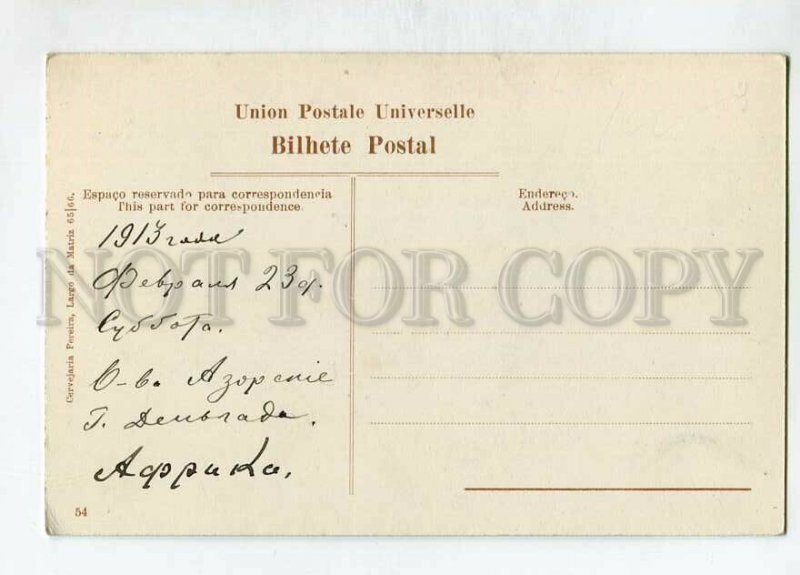 Union Postale Universelle
Bilhete Postal
Espaço reservado para correspondencia
This part for correspondence.
Endereço.
Address.
Cervejaria Pereira, Largo da Matriz 65|66.
1913 года
Февраля 23 д.
Суббота.
О-ва Азорскіе
Г. Деньгада.
Африка.
54
NOT FOR COPY